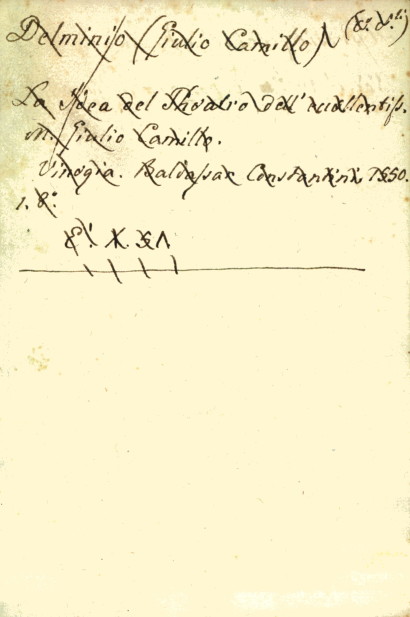 Delminio (Giulio Camillo)
La Idea del Theatro dell' eccellentiss.
M. Giulio Camillo.
Vinegia. Baldassar Constantini, 1550.
1. 8º